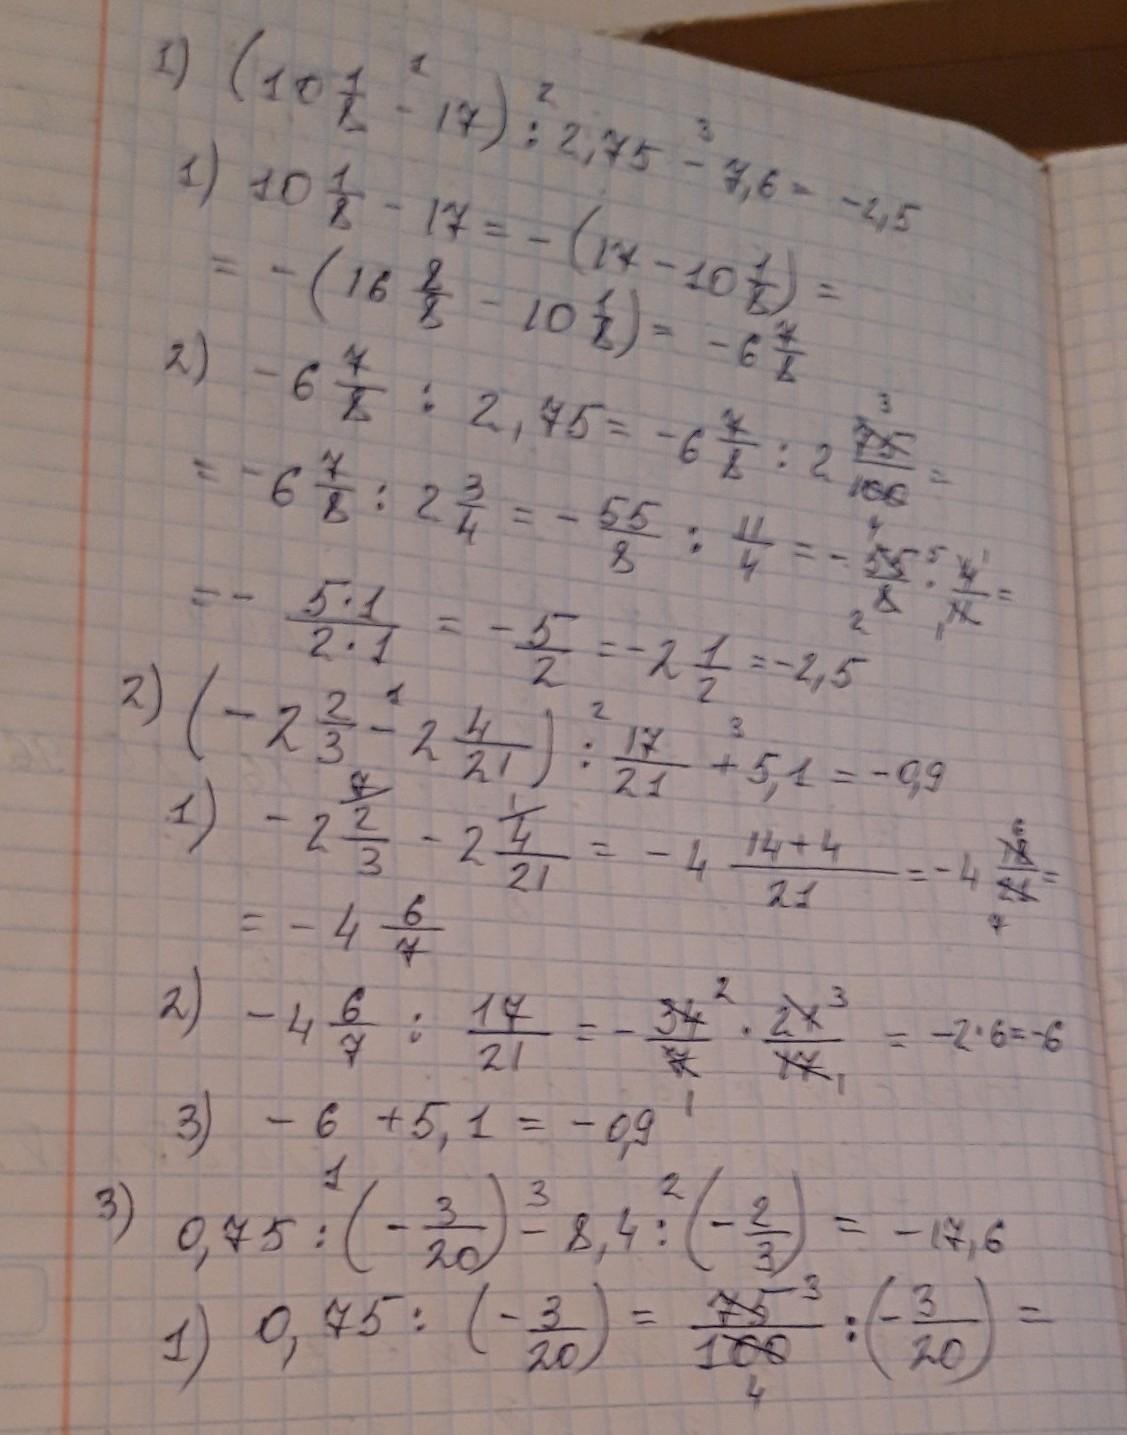 1) (10 1/8 - 17) : 2,75 - 7,6 = -2,5
1) 10 1/8 - 17 = -(17 - 10 1/8) =
= -(16 8/8 - 10 1/8) = -6 7/8
2) -6 7/8 : 2,75 = -6 7/8 : 2 75/100 =
= -6 7/8 : 2 3/4 = - 55/8 : 11/4 = - 55/8 · 4/11 =
= - 5·1/2·1 = - 5/2 = -2 1/2 = -2,5
2) (-2 2/3 - 2 4/21) : 17/21 + 5,1 = -0,9
1) -2 2/3 - 2 4/21 = -4 14+4/21 = -4 18/21 =
= -4 6/7
2) -4 6/7 : 17/21 = - 34/7 · 21/17 = -2·6=-6
3) -6 +5,1 = -0,9
3) 0,75 : (- 3/20) - 8,4 : (- 2/3) = -17,6
1) 0,75 : (- 3/20) = 75/100 : (- 3/20) =